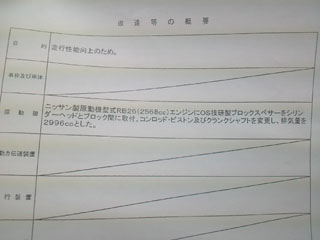 改造等の概要
目 的
走行性能向上のため。
車枠及び車体
原動機
ニッサン製原動機型式RB26(2568cc)エンジンにOS技研製ブロックスペサーをシリン
ダーヘッドとブロック間に取付、コンロッド・ピストン及びクランクシャフトを変更し、排気量を
2996ccとした。
動力伝達装置
行装置